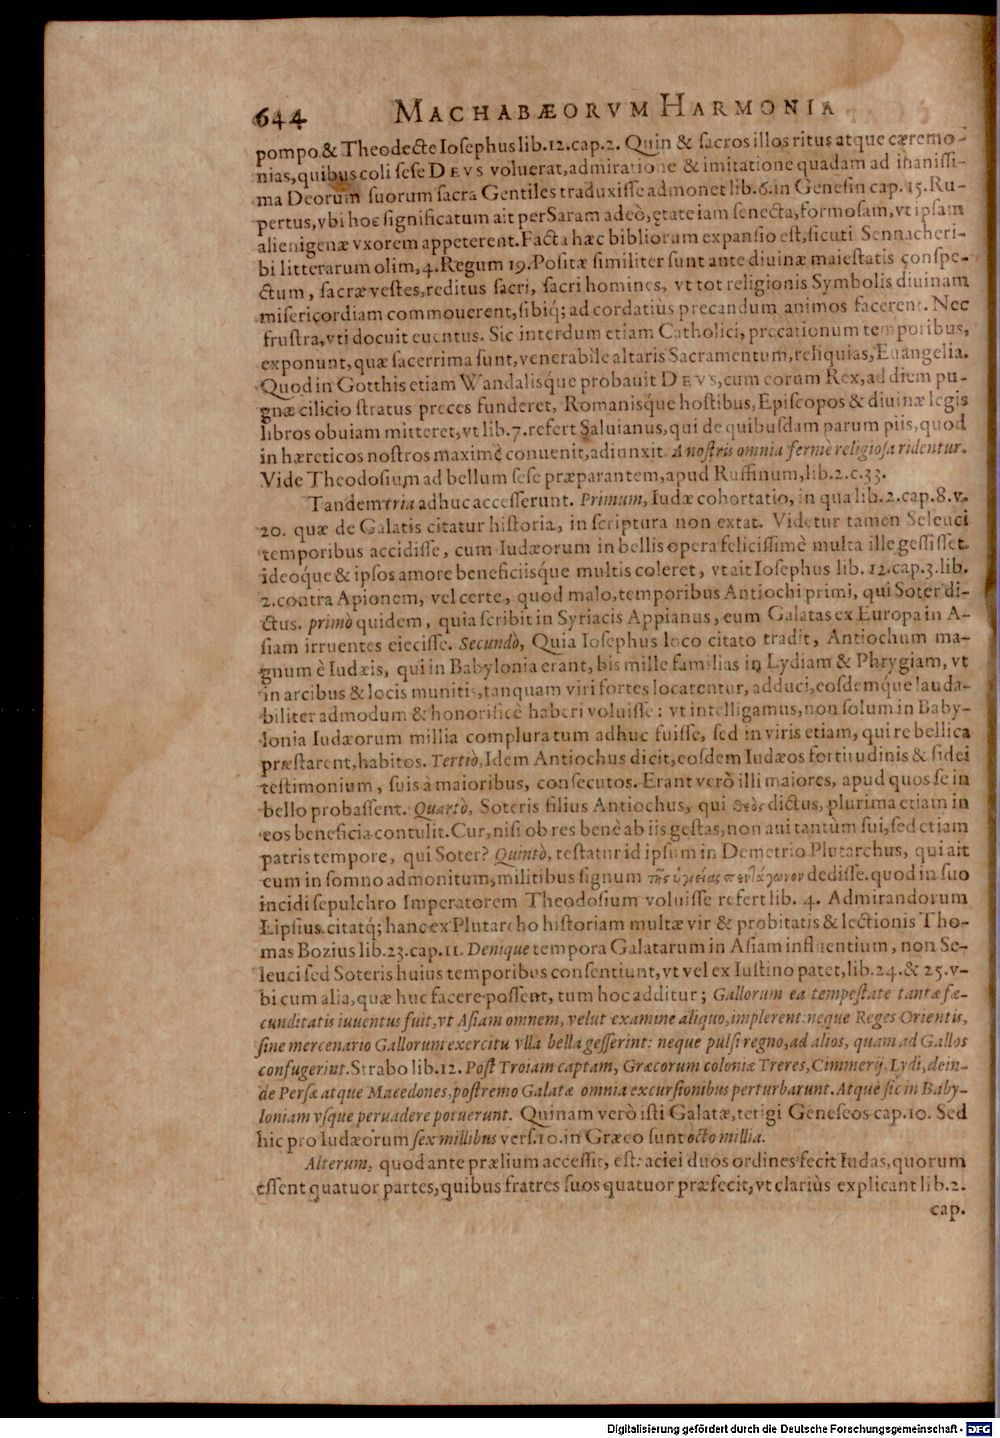 644 MACHABÆORVM HARMONIA
pompo & Theodecte Iosephus lib. 12. cap. 2. Quin & sacros illos ritus atque cæremo-
nias, quibus coli sese DEVS voluerat, admiratione & imitatione quadam ad inanissi-
ma Deorum suorum sacra Gentiles traduxisse admonet lib. 6. in Genesin cap. 15. Ru-
pertus, vbi hoc significatum ait per Saram adeò, ętate iam senecta, formosam, vt ipsam
alienigenæ vxorem appeterent. Facta hæc bibliorum expansio est, sicuti Sennacheri-
bi litterarum olim, 4. Regum 19. Positæ similiter sunt ante diuinæ maiestatis conspe-
ctum, sacræ vestes, reditus sacri, sacri homines, vt tot religionis Symbolis diuinam
misericordiam commouerent, sibiq́; ad cordatiùs precandum animos facerent. Nec
frustra, vti docuit euentus. Sic interdum etiam Catholici, precationum temporibus,
exponunt, quæ sacerrima sunt, venerabile altaris Sacramentum, reliquias, Euangelia.
Quod in Gotthis etiam Wandalisque probauit DEVS, cum eorum Rex, ad diem pu-
gnæ cilicio stratus preces funderet, Romanisque hostibus, Episcopos & diuinæ legis
libros obuiam mitteret, vt lib. 7. refert Saluianus, qui de quibusdam parum piis, quod
in hæreticos nostros maximè conuenit, adiunxit. A nostris omnia fermè religiosa ridentur.
Vide Theodosium ad bellum sese præparantem, apud Ruffinum, lib. 2. c. 33.
Tandem tria adhuc accesserunt. Primum, Iudæ cohortatio, in qua lib. 2. cap. 8. v.
20. quæ de Galatis citatur historia, in scriptura non extat. Videtur tamen Seleuci
temporibus accidisse, cum Iudæorum in bellis opera felicissimè multa ille gessisset.
ideoque & ipsos amore beneficiisque multis coleret, vt ait Iosephus lib. 12. cap. 3. lib.
2. contra Apionem, vel certe, quod malo, temporibus Antiochi primi, qui Soter di-
ctus. primò quidem, quia scribit in Syriacis Appianus, eum Galatas ex Europa in A-
siam irruentes eiecisse. Secundò, Quia Iosephus loco citato tradit, Antiochum ma-
gnum è Iudæis, qui in Babylonia erant, bis mille familias in Lydiam & Phrygiam, vt
in arcibus & locis munitis, tanquam viri fortes locarentur, adduci, eosdemque lauda-
biliter admodum & honorificè haberi voluisse: vt intelligamus, non solum in Baby-
lonia Iudæorum millia complura tum adhuc fuisse, sed in viris etiam, qui re bellica
præstarent, habitos. Tertiò, Idem Antiochus dicit, eosdem Iudæos fortitudinis & fidei
testimonium, suis à maioribus, consecutos. Erant verò illi maiores, apud quos se in
bello probassent. Quartò, Soteris filius Antiochus, qui Θεὸς dictus, plurima etiam in
eos beneficia contulit. Cur, nisi ob res benè ab iis gestas, non aui tantùm sui, sed etiam
patris tempore, qui Soter? Quintò, testatur id ipsum in Demetrio Plutarchus, qui ait
eum in somno admonitum, militibus signum τῆς ὑγιείας πεντάγωνον dedisse. quod in suo
incidi sepulchro Imperatorem Theodosium voluisse refert lib. 4. Admirandorum
Lipsius. citatq́; hanc ex Plutarcho historiam multæ vir & probitatis & lectionis Tho-
mas Bozius lib. 23. cap. 11. Denique tempora Galatarum in Asiam influentium, non Se-
leuci sed Soteris huius temporibus consentiunt, vt vel ex Iustino patet, lib. 24. & 25. v-
bi cum alia, quæ huc facere possent, tum hoc additur; Gallorum ea tempestate tantæ fæ-
cunditatis iuuentus fuit, vt Asiam omnem, velut examine aliquo, implerent: neque Reges Orientis,
sine mercenario Gallorum exercitu vlla bella gesserint: neque pulsi regno, ad alios, quam ad Gallos
confugerint. Strabo lib. 12. Post Troiam captam, Græcorum coloniæ Treres, Cimmerij, Lydi, dein-
de Persæ atque Macedones, postremo Galatæ omnia excursionibus perturbarunt. Atque sic in Baby-
loniam vsque peruadere potuerunt. Quinam verò isti Galatæ, tetigi Geneseos cap. 10. Sed
hic pro Iudæorum sex millibus vers. 10. in Græco sunt octo millia.
Alterum, quod ante prælium accessit, est: aciei duos ordines fecit Iudas, quorum
essent quatuor partes, quibus fratres suos quatuor præfecit, vt clariùs explicant lib. 2.
cap.
Digitalisierung gefördert durch die Deutsche Forschungsgemeinschaft - DFG